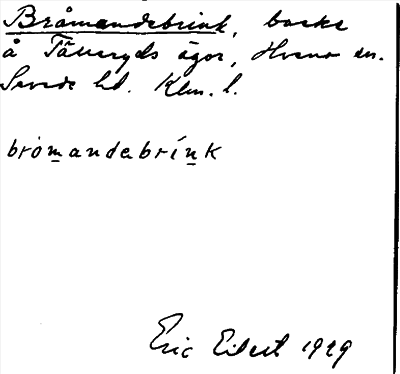 Bråmandebrink, backe
å Tälleryds ägor, Hvena sn.
Sevede hd. Klm. l.
bromandebrínk
Eric Eilert 1929